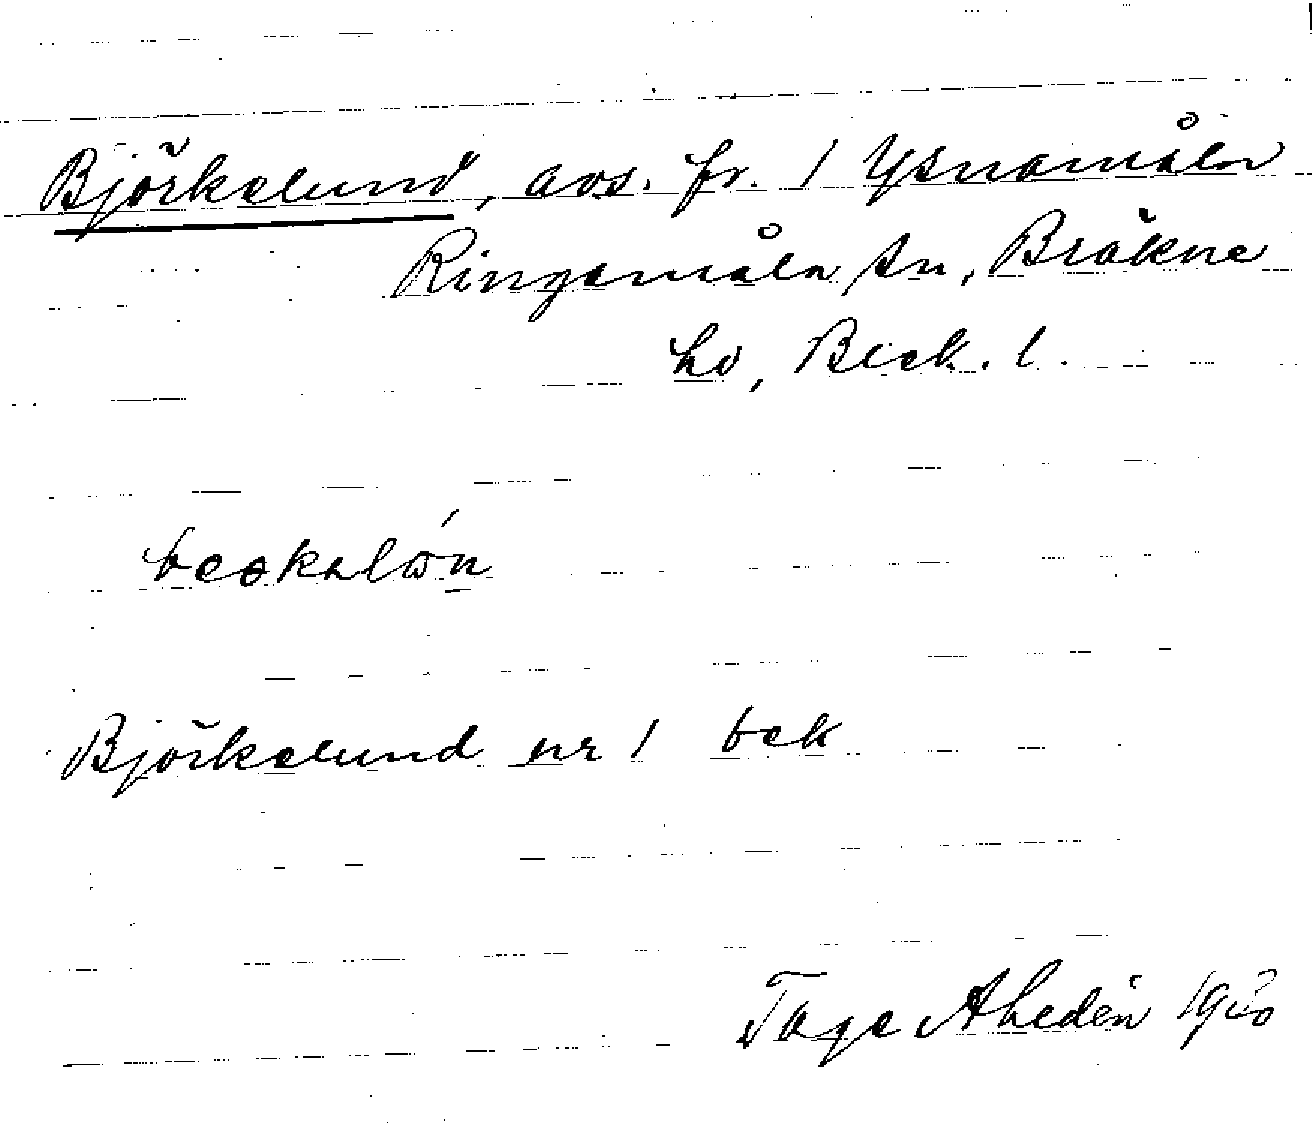 Björkelund, avs. fr. 1 Ysnamåla
Ringamåla sn, Bräkne
hd, Blek. l.
Björkelund nr 1 bek
Tage Ahldén 1930